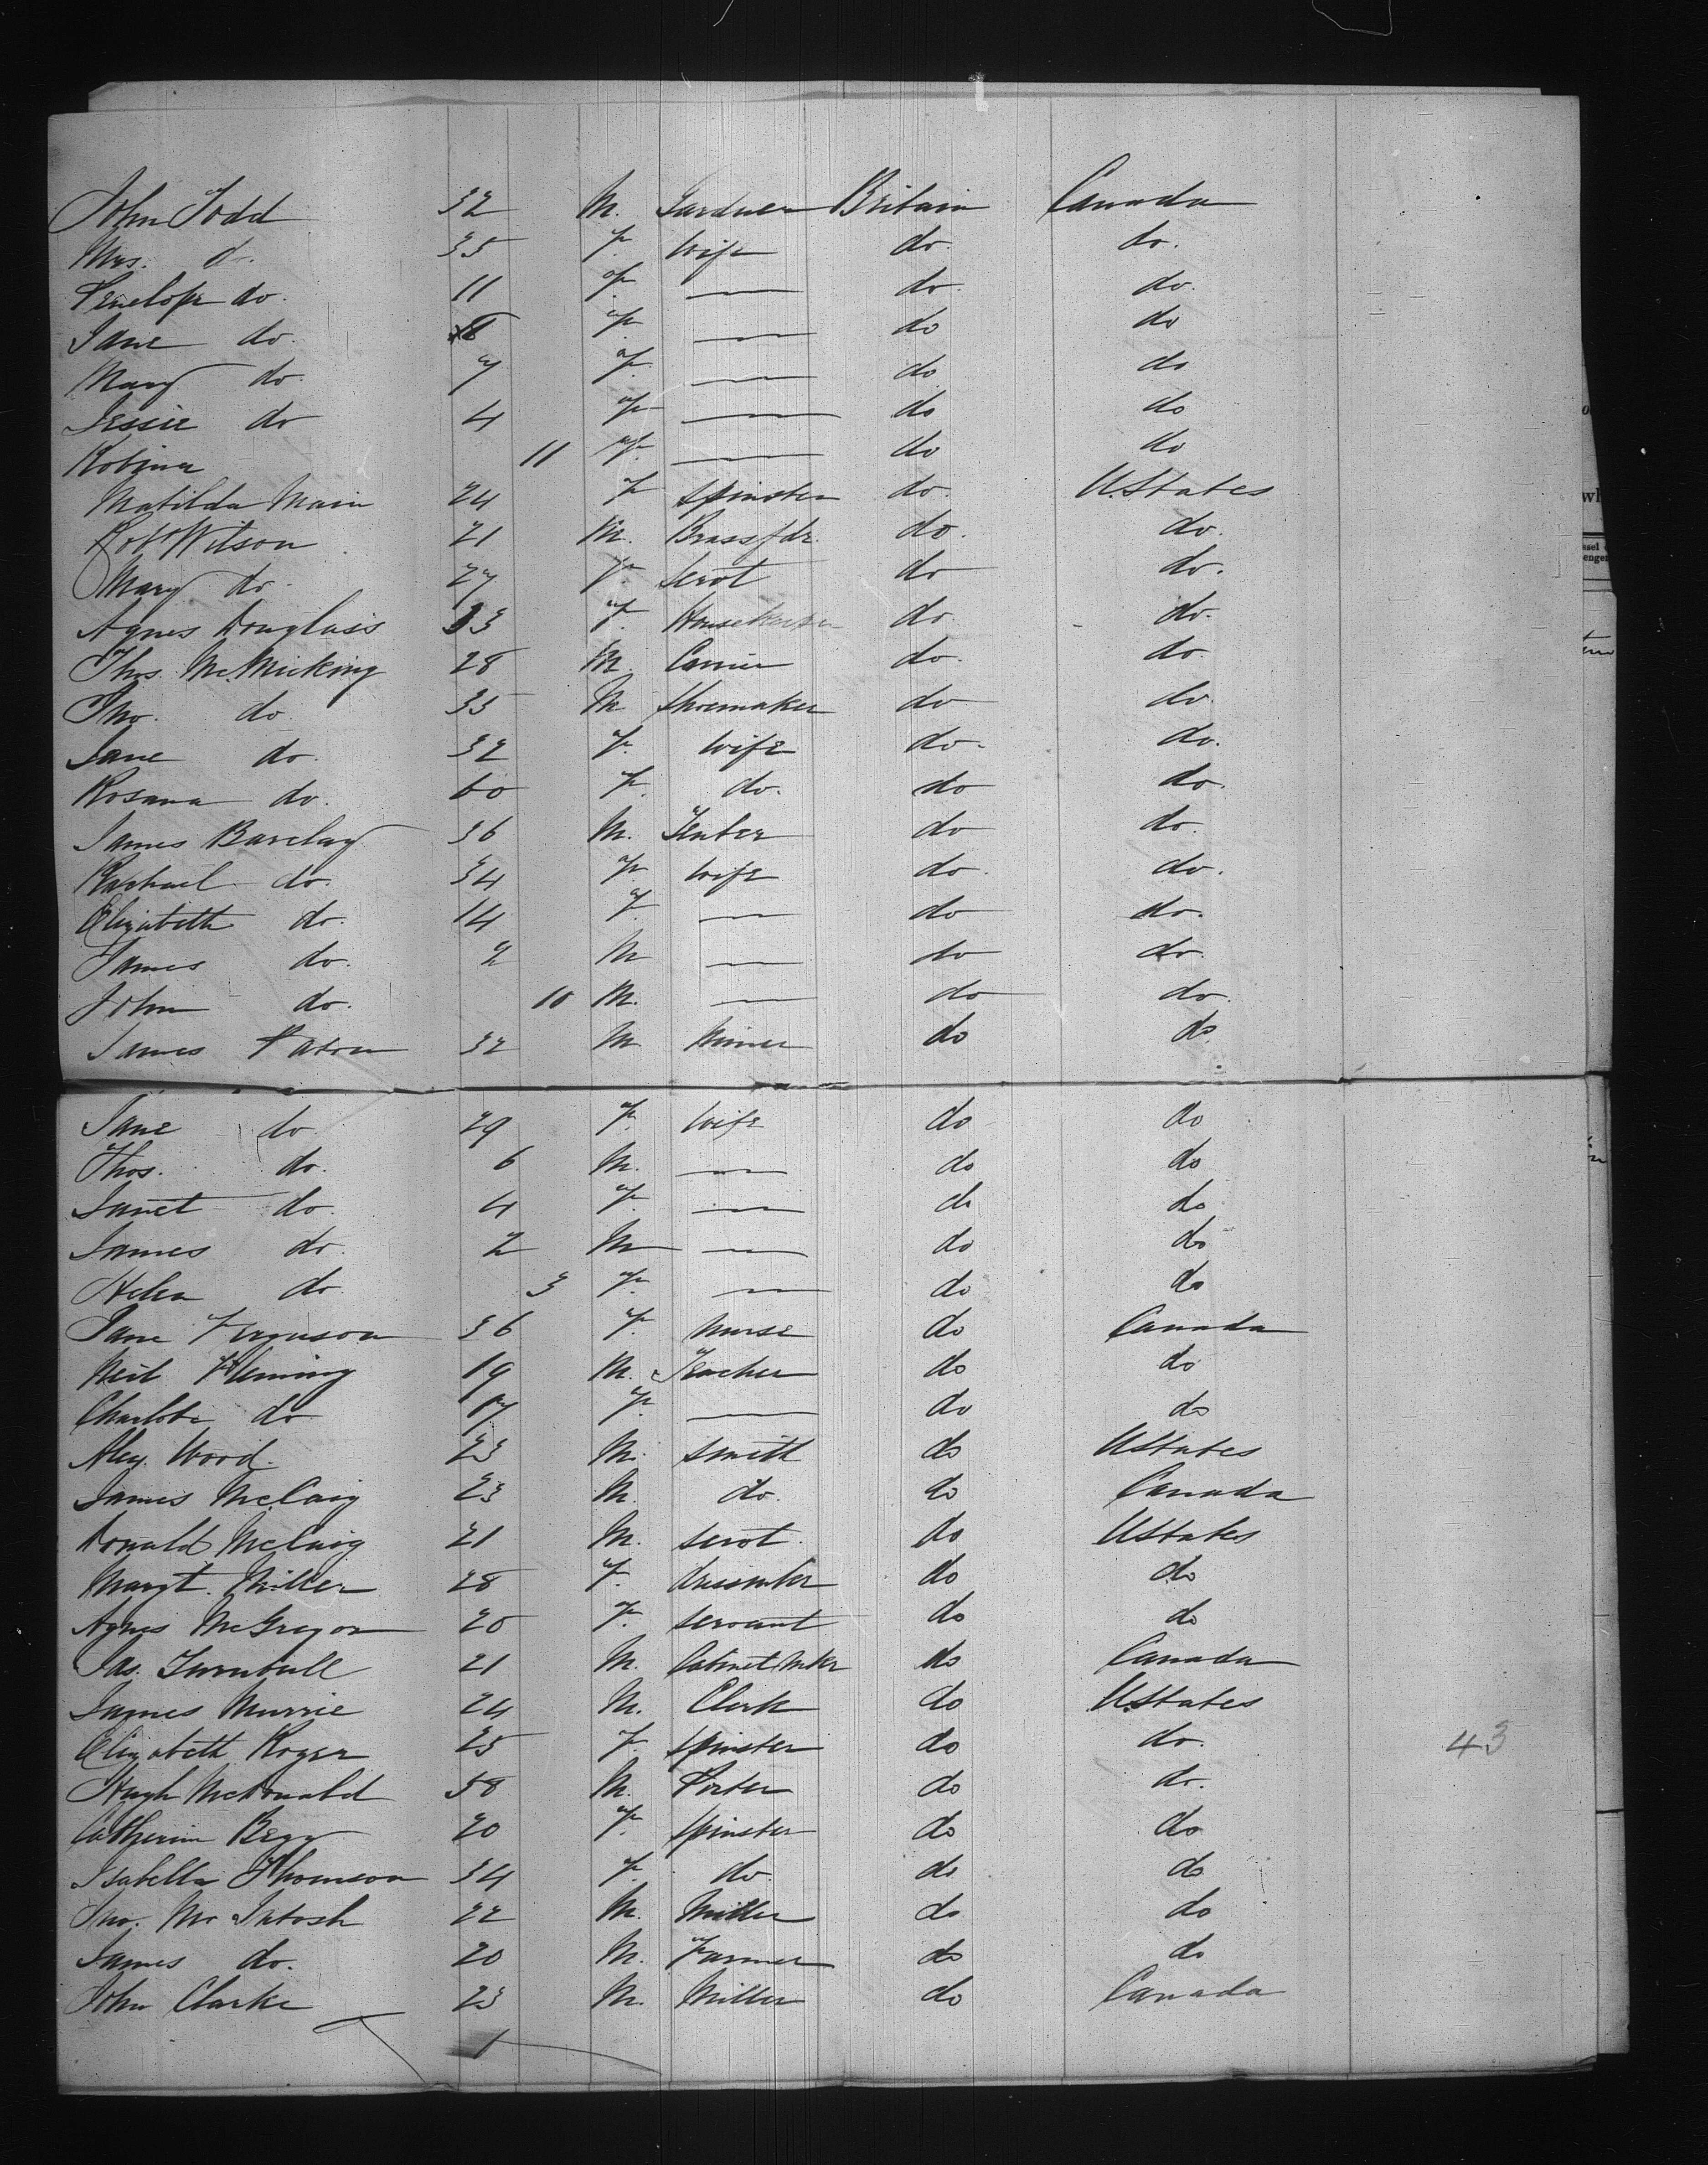 John Todd 32 M. Gardner Britain Canada
Mrs. do. 35 F. Wife do. do.
Penelope do. 11 F. — do. do.
Jane do. 8 F. — do do
Mary do. 7 F. — do do
Jessie do 4 F — do do
Robina 11 F. — do do
Matilda Main 24 F Spinster do. U.States
Robt Wilson 21 M. Brassfdr. do. do.
Mary do. 27 F. Servt do do.
Agnes Douglass 33 F. Housekeeper do. do.
Thos. McMicking 28 M. do. do.
Jno. do. 35 M Shoemaker do do.
Jane do. 32 F. Wife do. do.
Rosana do. 60 F. do. do do.
James Barclay 36 M. do do.
Rachael do. 34 F. Wife do. do.
Elizabeth do. 14 F. — do do.
James do. 2 M — do do.
John do. 10 M. — do do.
James Paton 32 M do do.
Jane do 29 F. Wife do do
Thos. do. 6 M. — do do
Janet do. 4 F. — do do
James do. 2 M — do do
Helen do. 3 F. — do do
Jane Ferguson 36 F. Nurse do Canada
Neil Fleming 19 M. Teacher do do
Charlotte do 17 F. — do do
Alex. Wood. 23 M. Smith do UStates
James McCaig 23 M. do. do Canada
Donald McCaig 21 M. Servt. do UStates
Margt. Miller 28 F. Dressmker do do
Agnes McGregor 20 F. Servant do do
Jas. Turnbull 21 M. Cabinet Mkr do Canada
James Murrie 24 M. Clerk do U.States
Elizabeth Roger 25 F. Spinster do do. 43
Hugh McDonald 58 M. Porter do do.
Catherine Begg 20 F. Spinster do do
Isabella Thomson 34 F. do. do do
Jno. McIntosh 22 M. Miller do do
James do. 20 M. Farmer do do
John Clarke 23 M. Miller do Canada